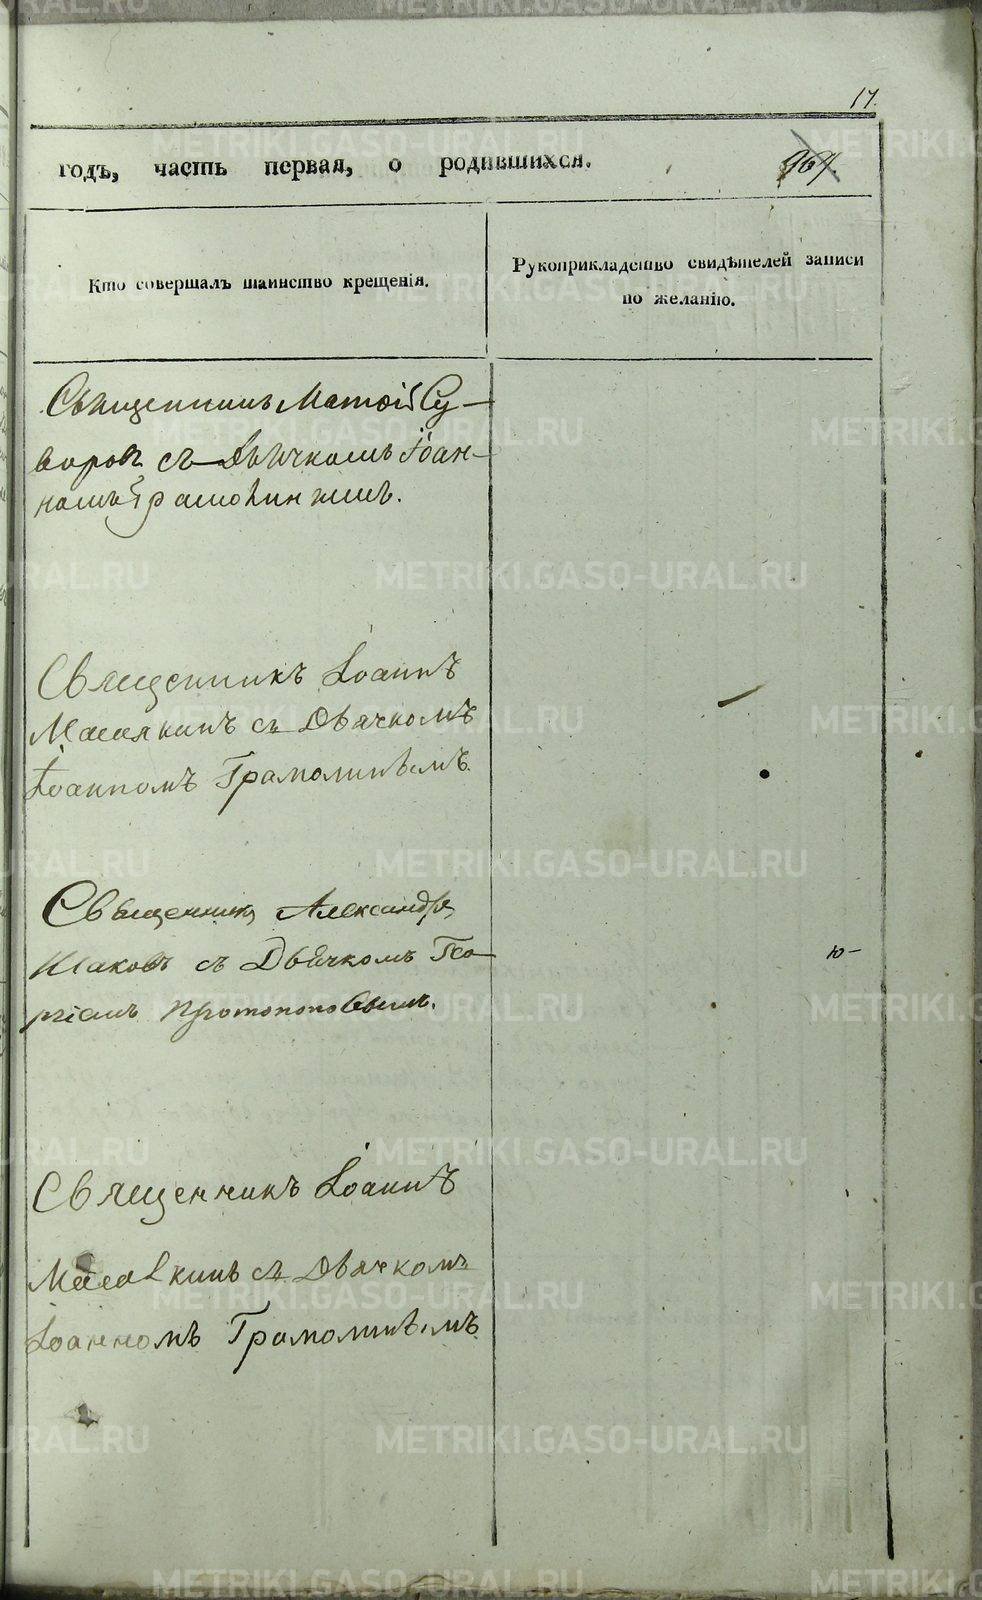 17.
годъ, часть первая, о родившихся.
964
Кто совершалъ таинство крещенія.
Рукоприкладство свидѣтелей записи
по желанію.
Священникъ Матѳій Су-
воровъ съ Дьячкомъ Іоан-
номъ
Священникъ Іоаннъ
Масалкинъ съ Дьячкомъ
Іоанномъ Грамолинымъ
Священникъ Александръ
Исаковъ съ Дьячкомъ Гео-
ргіемъ Протопоповымъ.
ю-
Священникъ Іоаннъ
Масалкинъ съ Дьячкомъ
Іоанномъ Грамолинымъ
METRIKI.GASO-URAL.RU